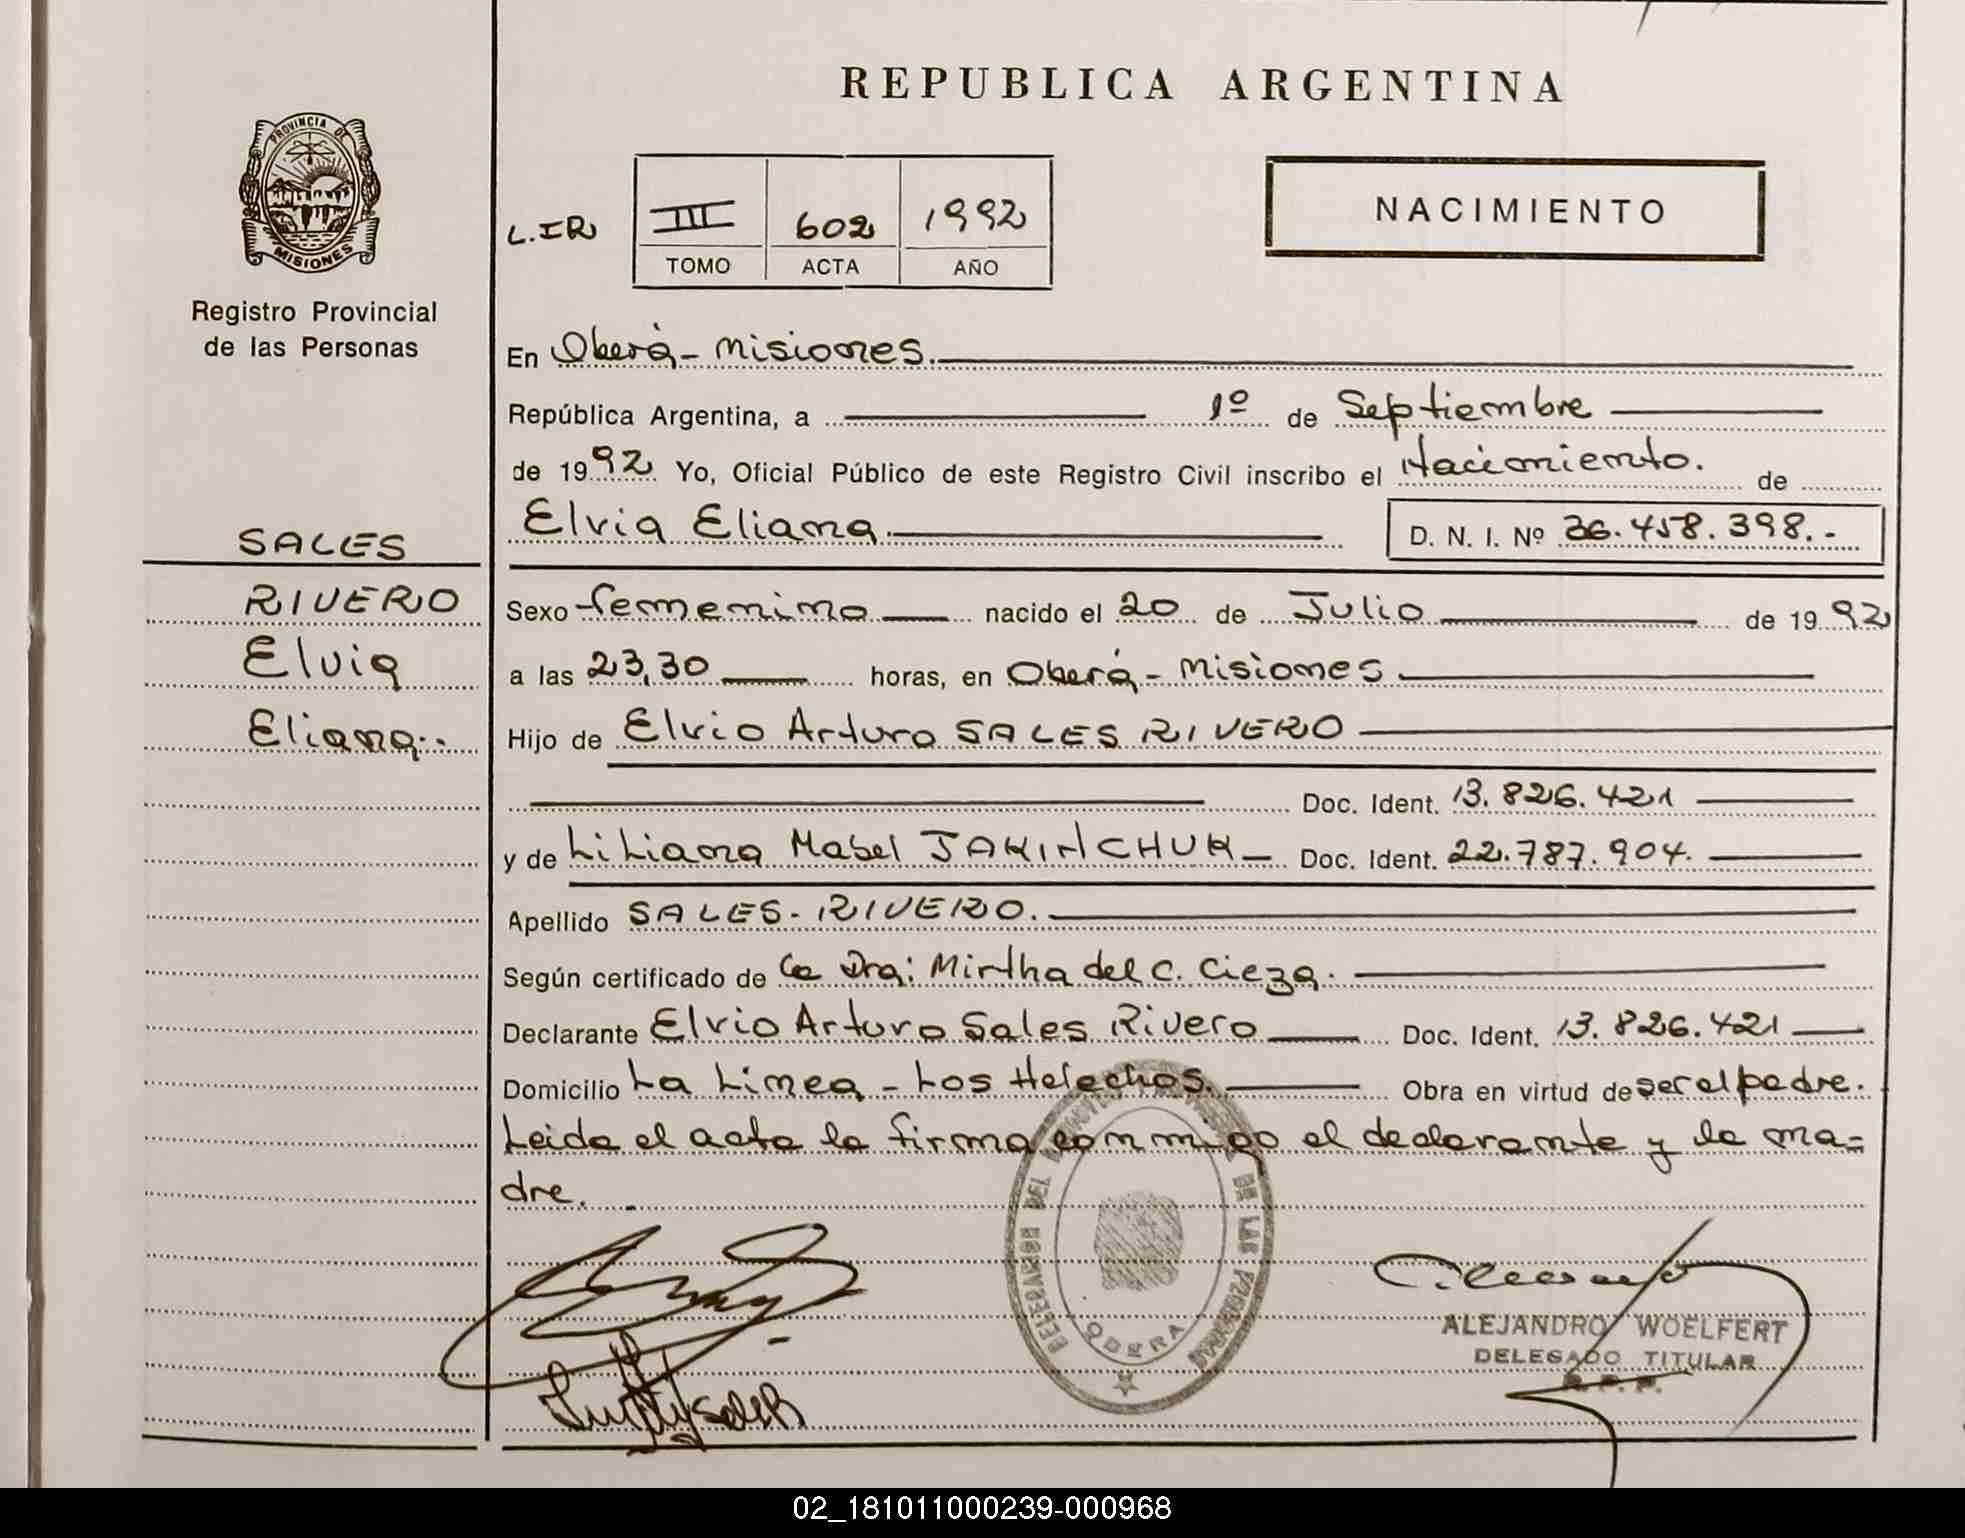 REPUBLICA ARGENTINA
PROVINCIA DE
MISIONES
Registro Provincial
de las Personas
L.IR
III 602 1992
TOMO ACTA AÑO
NACIMIENTO
En Oberá - Misiones.
República Argentina, a 1º de Septiembre
de 1992 Yo, Oficial Público de este Registro Civil inscribo el Nacimiento. de
Elvia Eliana D. N. I. Nº 36.458.398.-
SALES
RIVERO
Elvia
Eliana..
Sexo femenino nacido el 20 de Julio de 1992
a las 23,30 horas, en Oberá - Misiones
Hijo de Elvio Arturo SALES RIVERO
Doc. Ident. 13.826.421
y de Liliana Mabel JAKINCHUK Doc. Ident. 22.787.904.
Apellido SALES - RIVERO.
Según certificado de la Dra: Mirtha del C. Cieza.
Declarante Elvio Arturo Sales Rivero Doc. Ident. 13.826.421
Domicilio La Linea - Los Helechos. Obra en virtud de ser el padre.
Leida el acta la firma conmigo el declarante y la ma=
dre.
DE LAS PERSONAS
OBERA
ALEJANDRO WOELFERT
DELEGADO TITULAR
R. P. P.
02_181011000239-000968